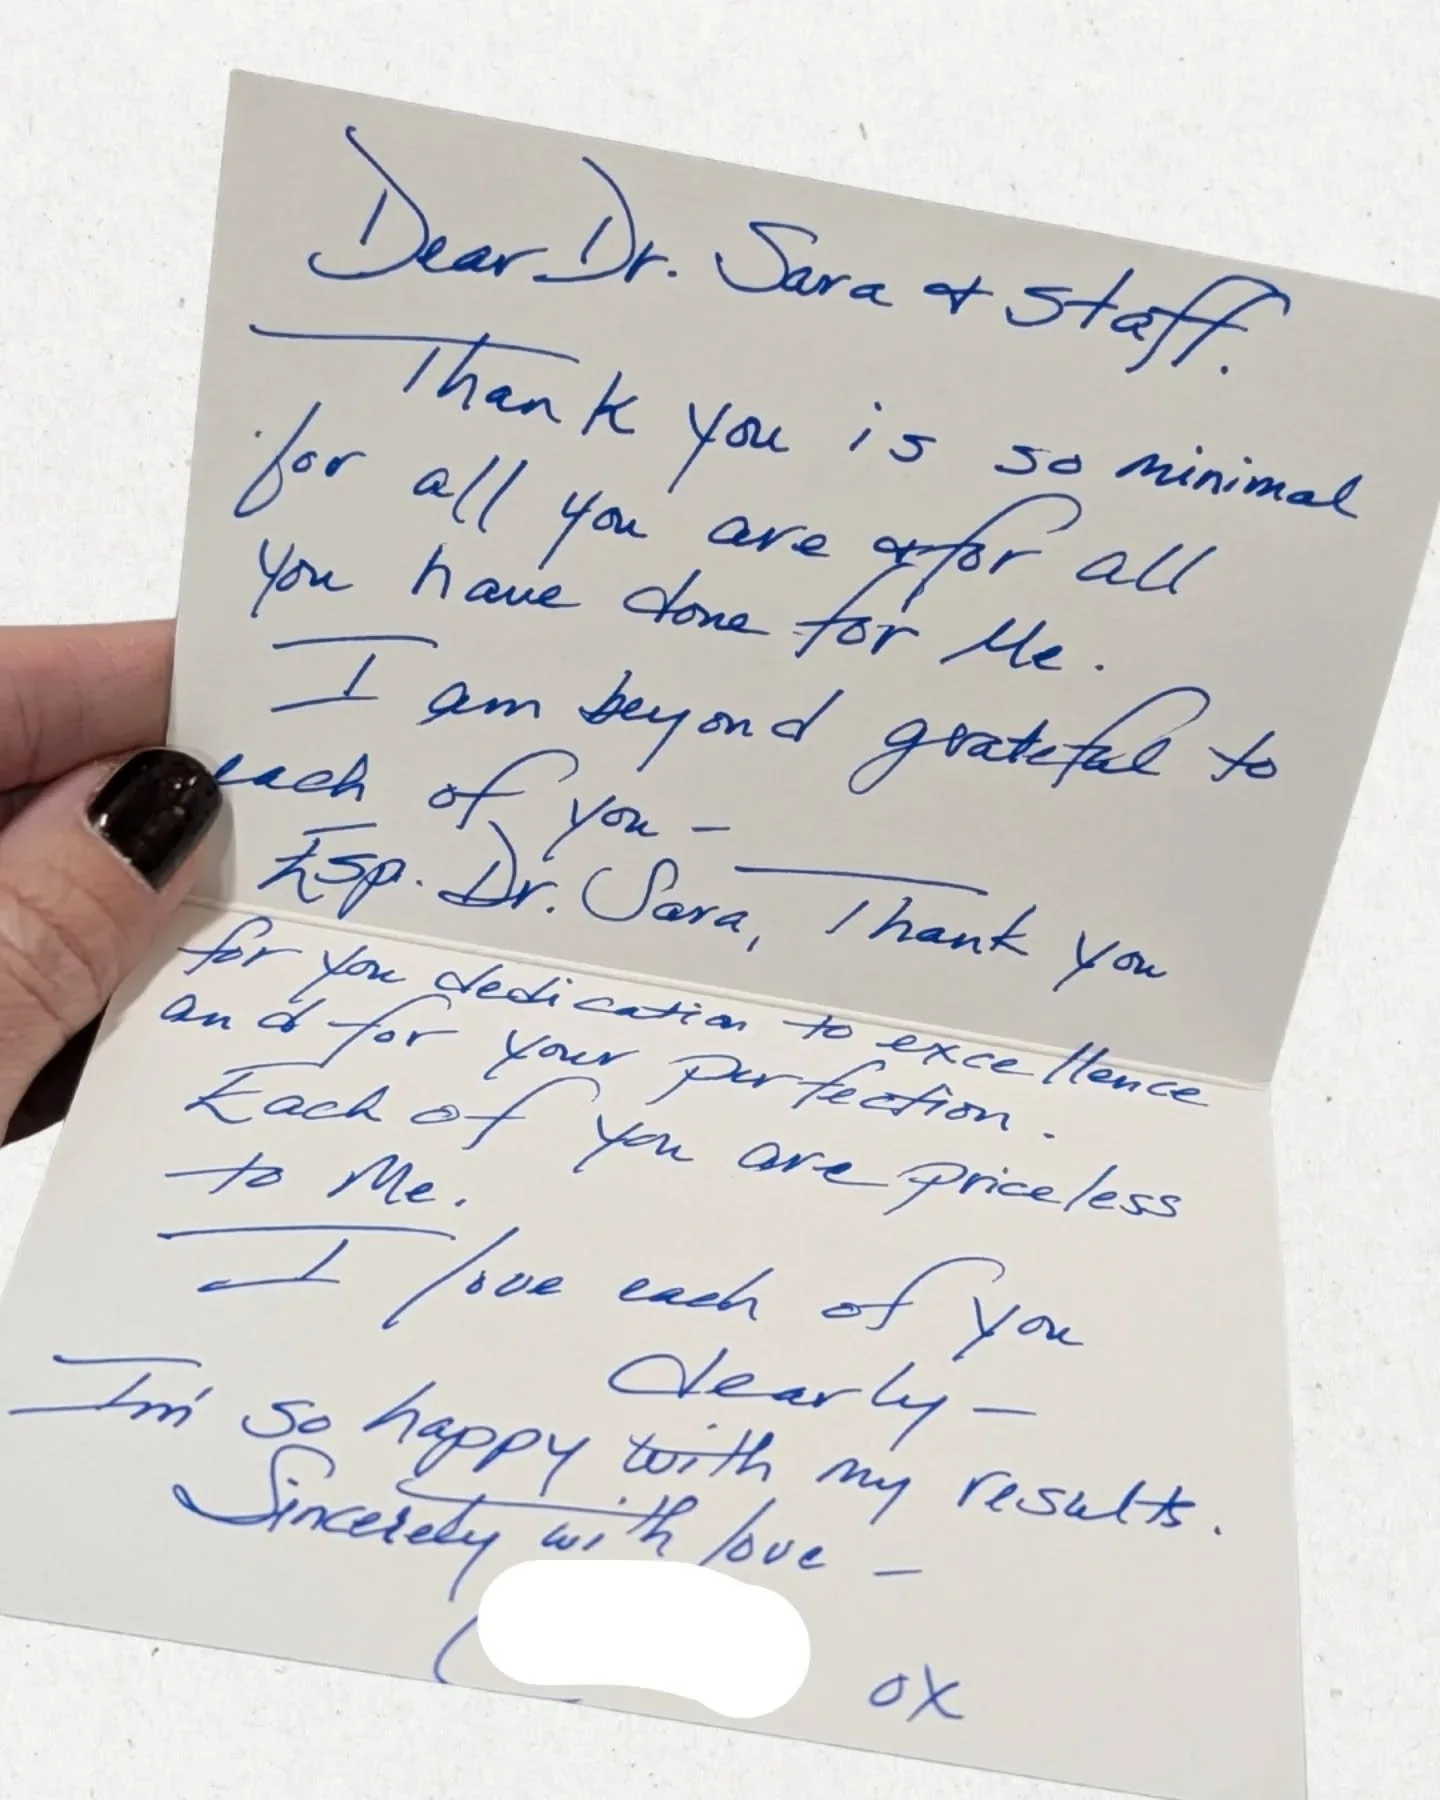 Dear Dr. Sara & staff.
Thank you is so minimal
for all you are & for all
you have done for Me.
I am beyond grateful to
each of you –
Esp. Dr. Sara, Thank you
for you dedication to excellence
and for your perfection.
Each of you are priceless
to Me.
I love each of you
dearly –
I'm so happy with my results.
Sincerely with love –
ox